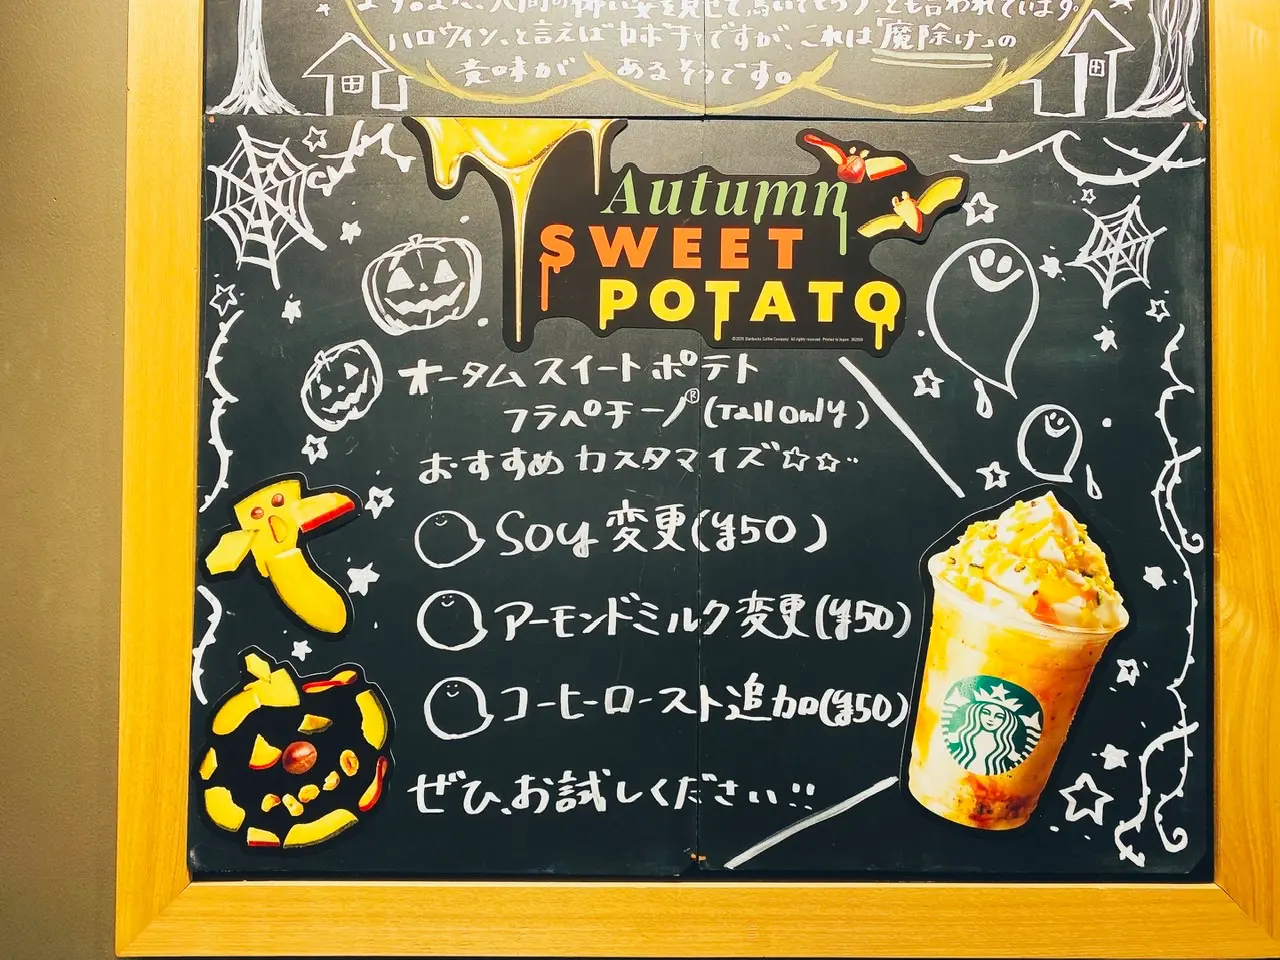 ます。また、人間の怖い姿を見せて驚いてもらう、とも言われています。
ハロウィン、と言えばカボチャですが、これは「魔除け」の
意味が あるそうです。
Autumn
SWEET
POTATO
オータム スイートポテト
フラペチーノ® (Tall only)
おすすめ カスタマイズ☆☆
Soy 変更(¥50)
アーモンドミルク変更(¥50)
コーヒーロースト追加(¥50)
ぜひ、お試しください!!